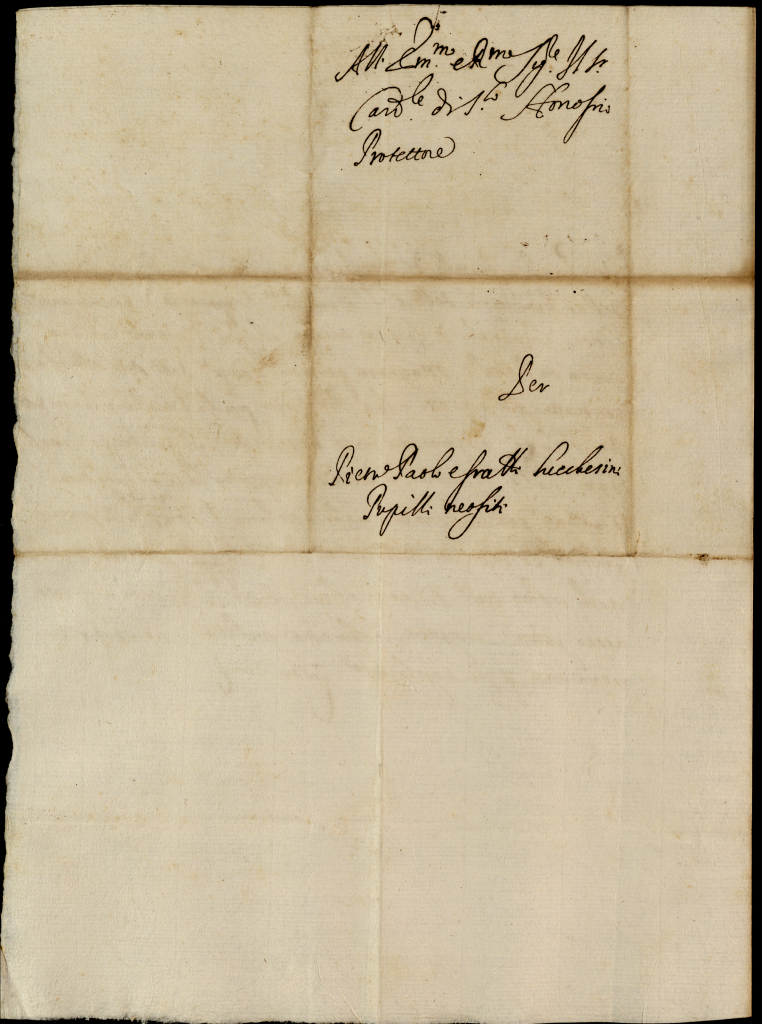 All. Em.mo e R.mo Sig.re Il Sr
Card.le di S.to Honofrio
Protettore
Per
Pietro Paolo e fratelli Lucchesini
Pupilli neofiti